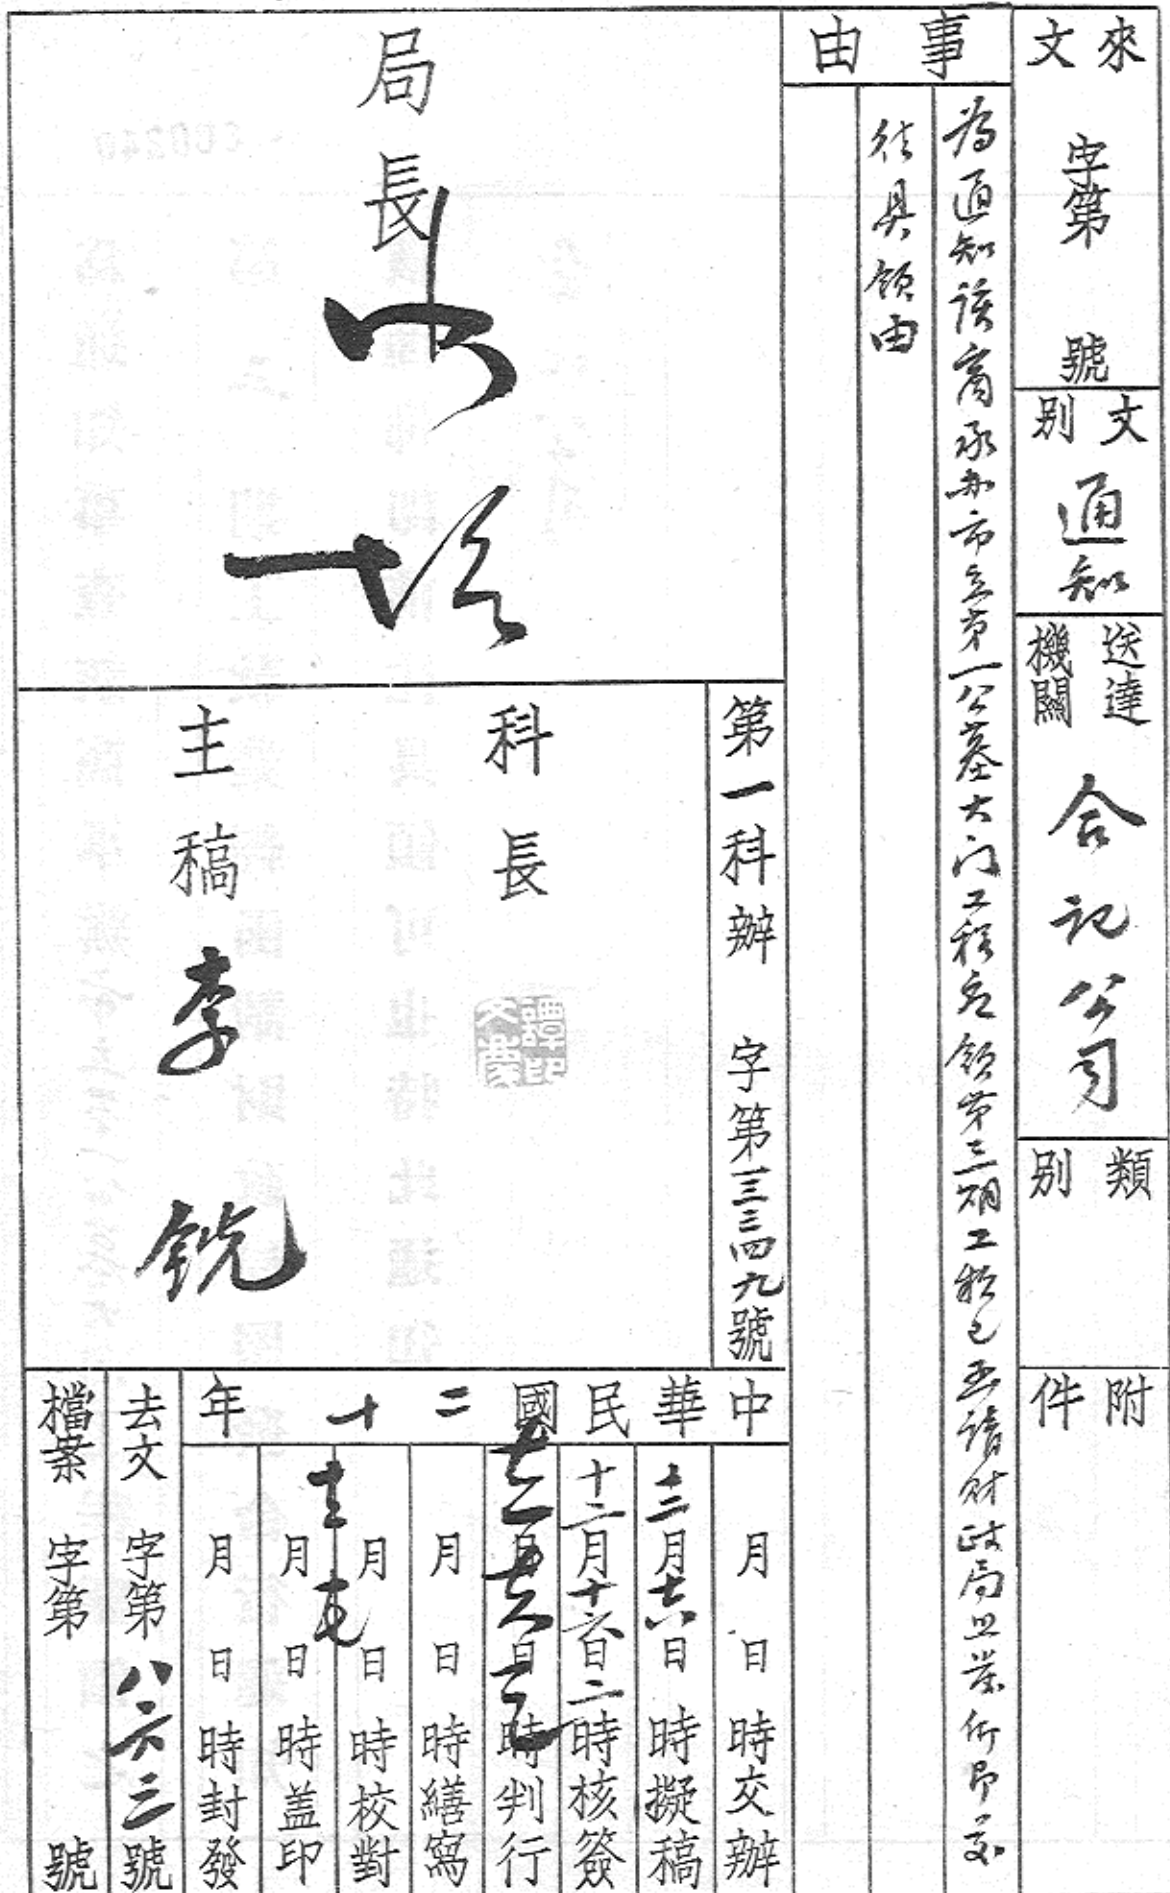 來文 字第 號
文別 通知
送達機關 合記公司
類別
附件
事由
為通知該商承办市立第一公墓大门工程应領第三期工程已函請財政局照發仰即前
往具領由
局長
第一科辦 字第三三四九號
科長 譚印文
主稿 李銑
中華民國二十年
月 日 時交辦
十二月十六日 時擬稿
十二月十六日二時核簽
時判行
月 日 時繕寫
月 日 時校對
月 日 時盖印
月 日 時封發
去文 字第八六三號
檔案 字第 號